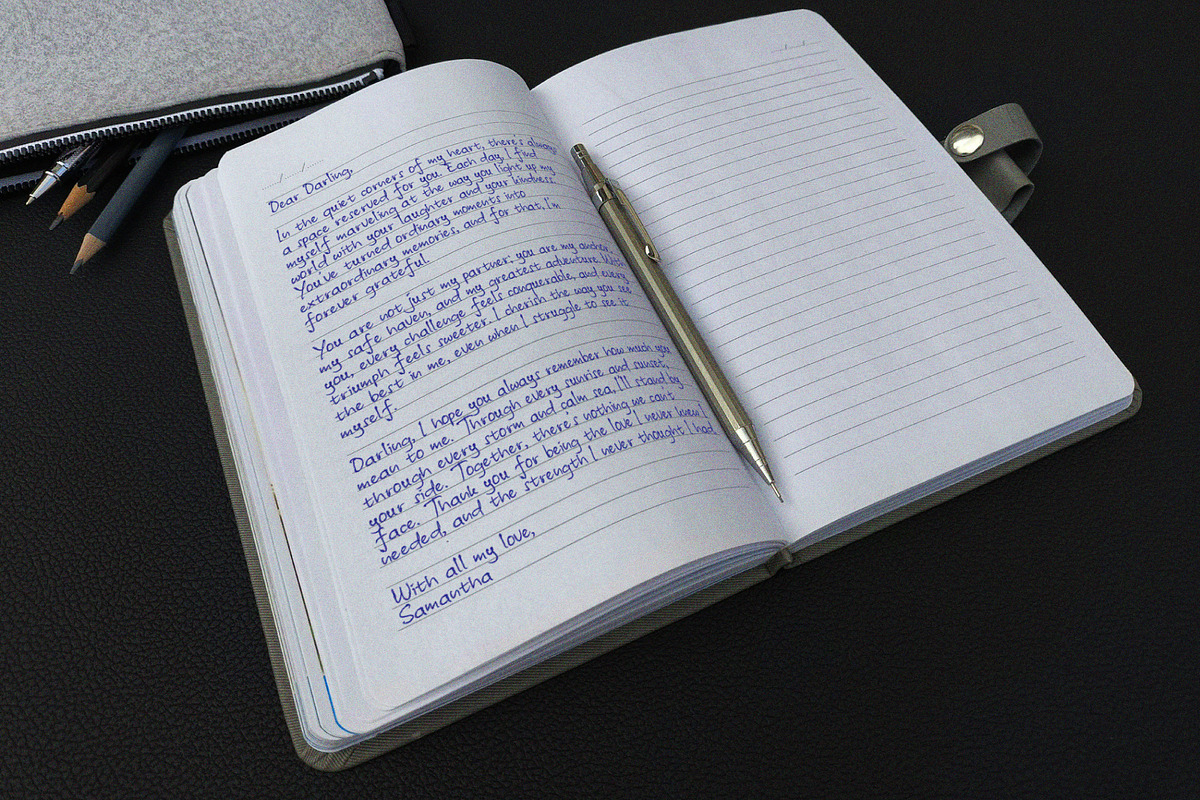 Dear Darling,
In the quiet corners of my heart, there's always
a space reserved for you. Each day, I find
myself marveling at the way you light up my
world with your laughter and your kindness.
You've turned ordinary moments into
extraordinary memories, and for that, I'm
forever grateful.
You are not just my partner; you are my anchor,
my safe haven, and my greatest adventure. With
you, every challenge feels conquerable, and every
triumph feels sweeter. I cherish the way you see
the best in me, even when I struggle to see it
myself.
Darling, I hope you always remember how much you
mean to me. Through every sunrise and sunset,
through every storm and calm sea, I'll stand by
your side. Together, there's nothing we can't
face. Thank you for being the love I never knew I
needed, and the strength I never thought I had
With all my love,
Samantha